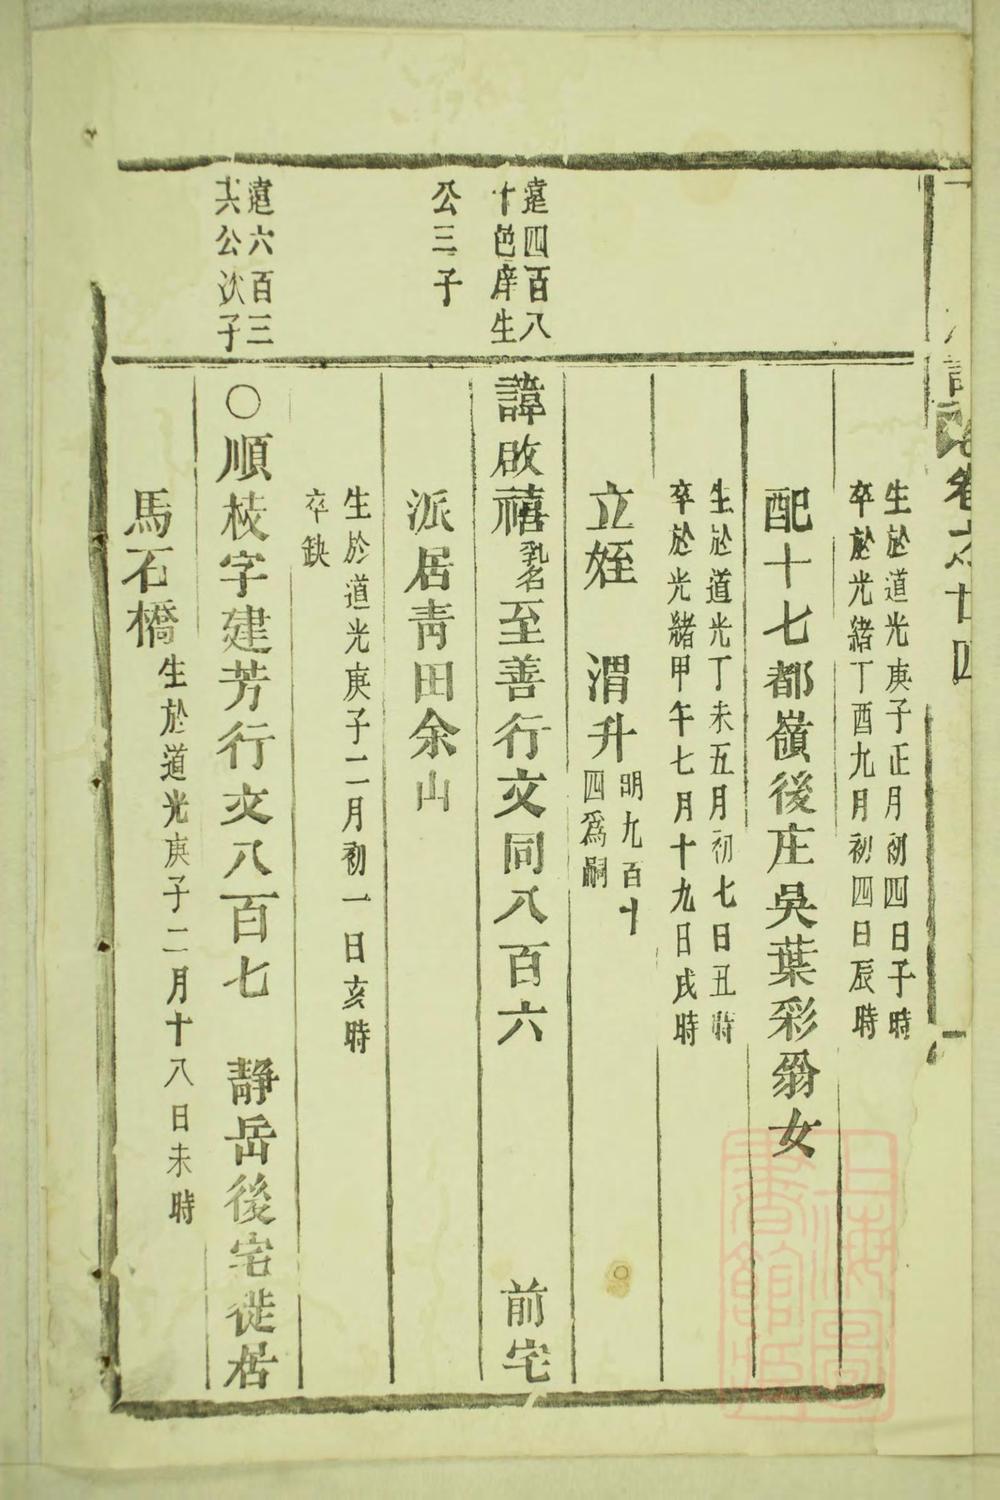 卷六 廿四
生於道光庚子正月初四日子時
卒於光緒丁酉九月初四日辰時
配十七都嶺後庄吳葉彩翁女
生於道光丁未五月初七日丑時
卒於光緒甲午七月十九日戌時
立姪 渭升
明九百十
四爲嗣
遠四百八
十邑庠生
公三子
諱啟禧乳名至善行文同八百六 前宅
派居靑田余山
生於道光庚子二月初一日亥時
卒缺
遠六百三
六公次子
○順枝字建芳行文八百七 靜岳後宅徙居
馬石橋
生於道光庚子二月十八日未時
上海圖
書館藏